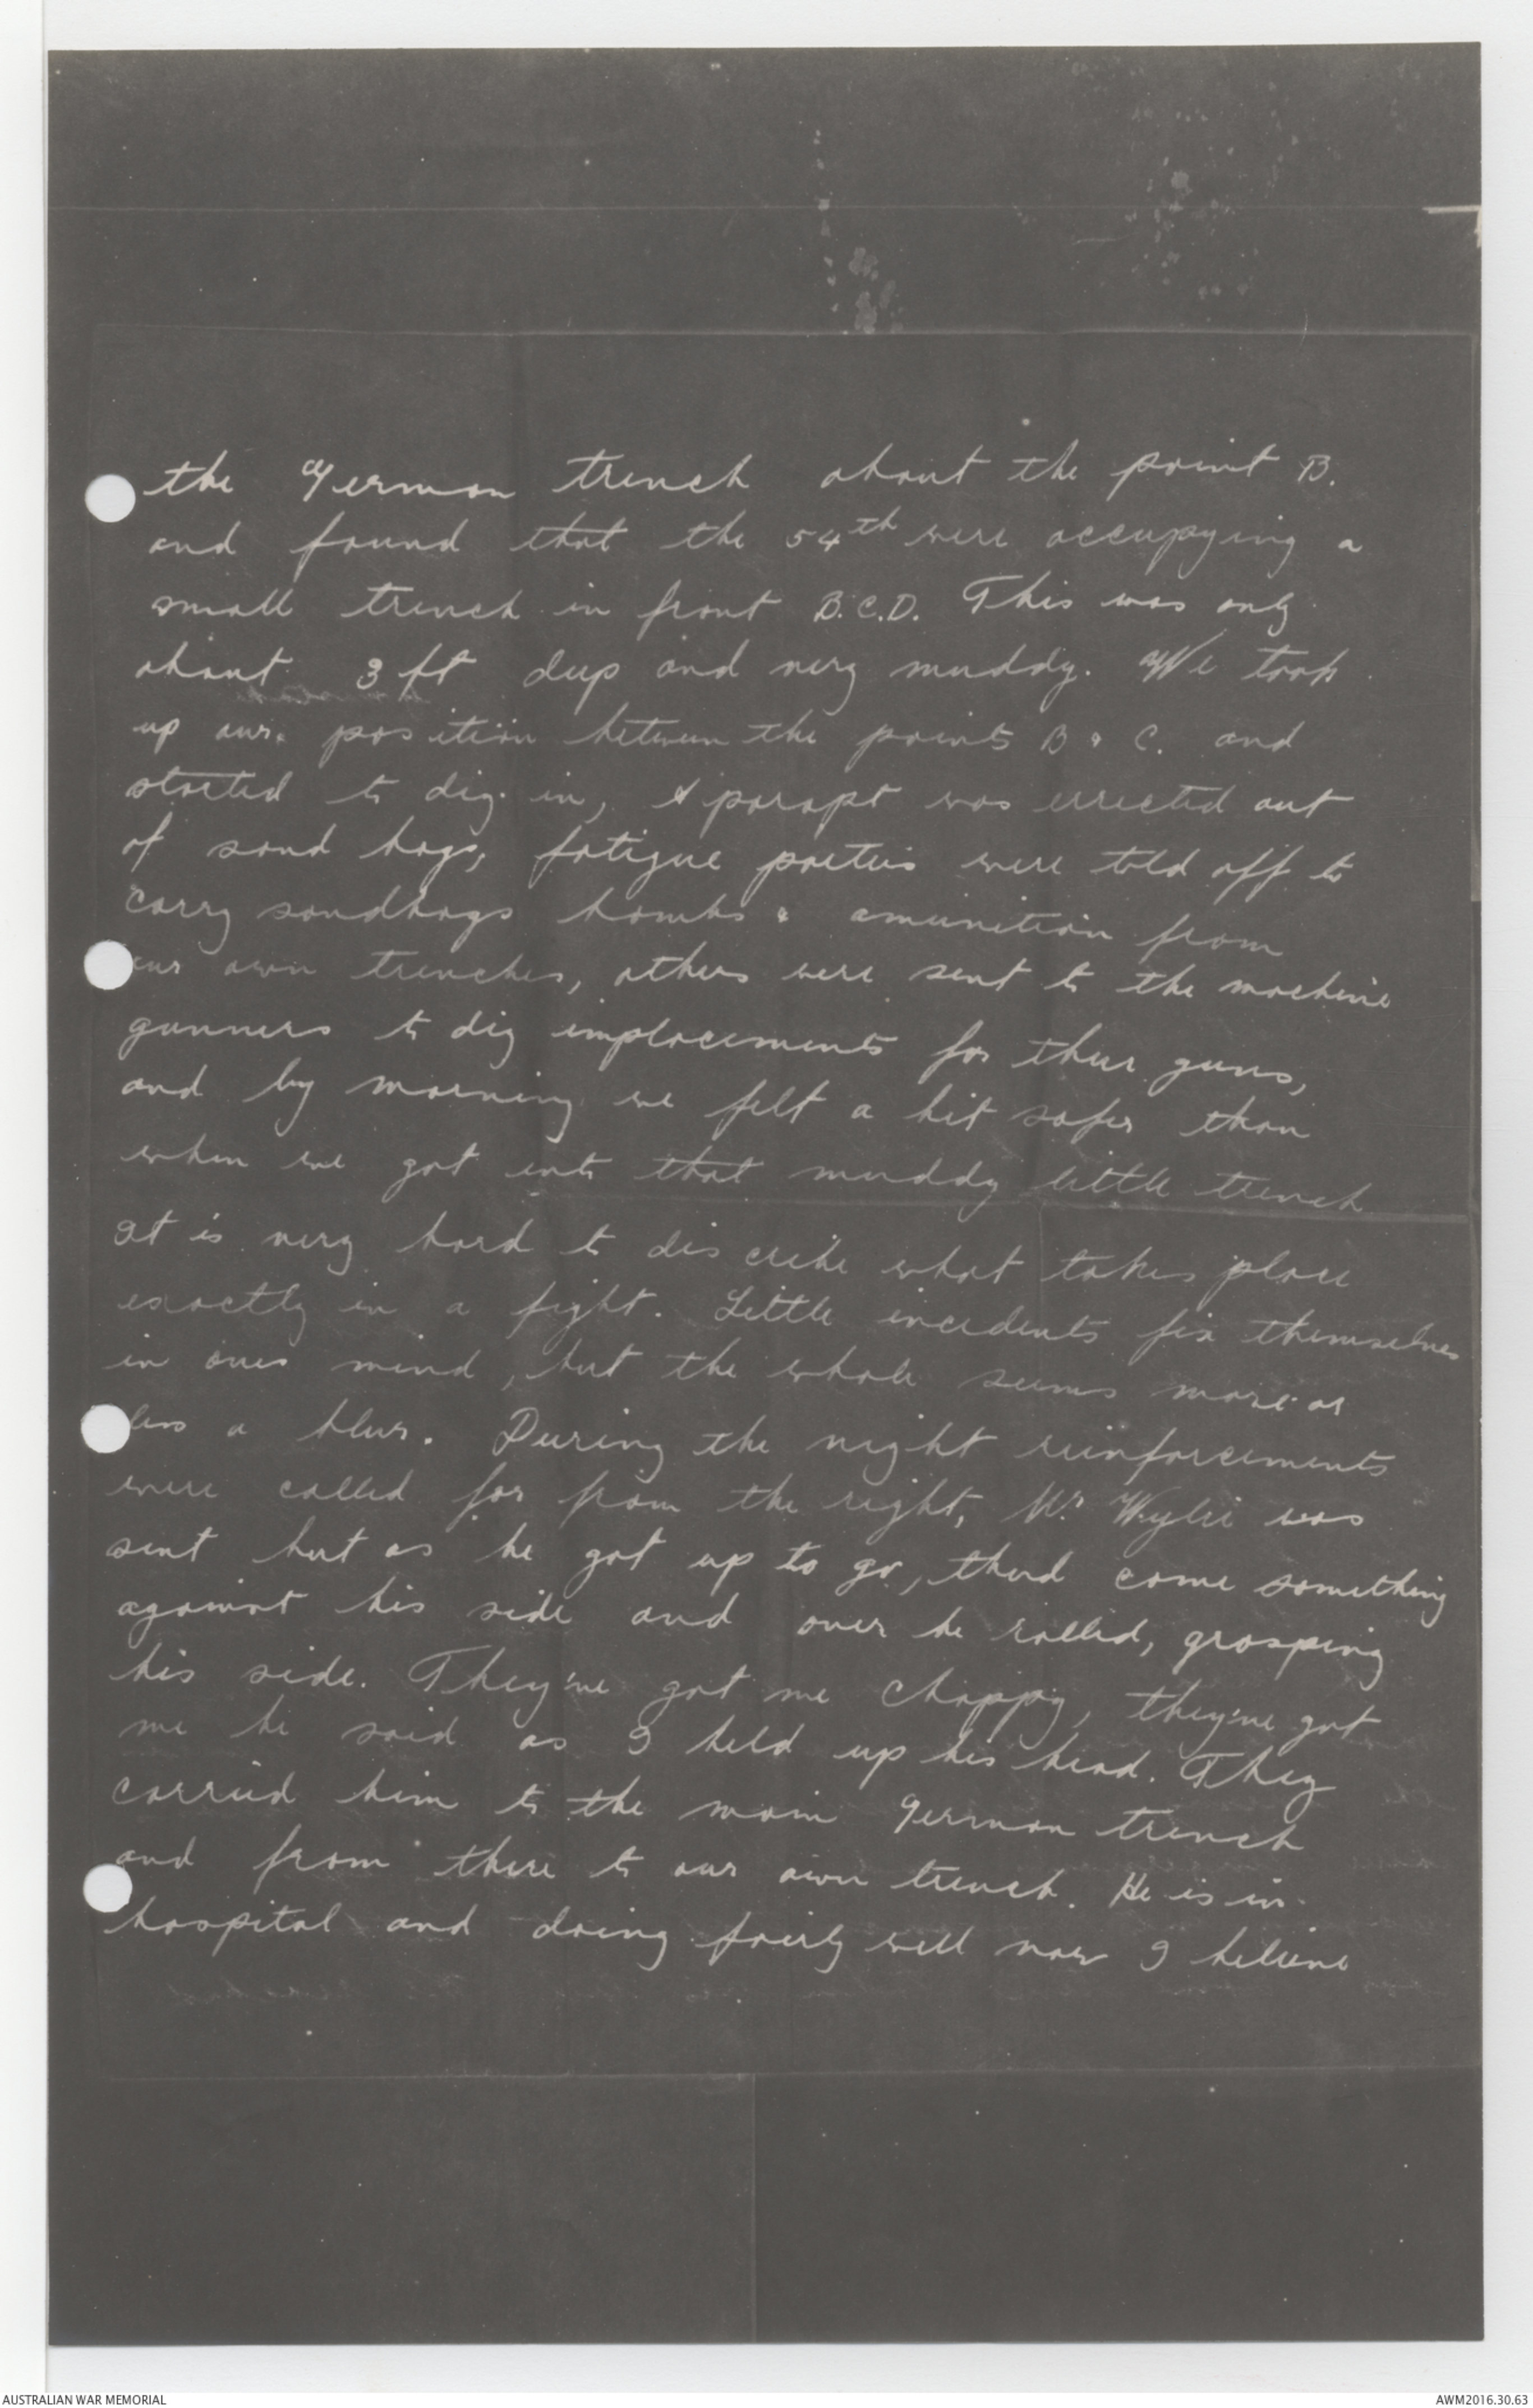 the German trench about the point B.
and found that the 54th were occupying a
small trench in front B.C.D. This was only
about 3 ft deep and very muddy. We took
up our position between the points B & C. and
started to dig in, A parapt was errected out
of sand bags, fatigue parties were told off to
carry sandbags bombs & amunition from
our own trenches, others were sent to the machine
gunners to dig implacements for their guns,
and by morning we felt a bit safer than
when we got into that muddy little trench
It is very hard to discribe what takes place
exactly in a fight. Little incidents fix themselves
in ones mind, but the whole seems more or
less a blur. During the night reinforcements
were called for from the right, Mr Wylie was
sent but as he got up to go, thud came something
against his side and over he rolled, grasping
his side. They've got me Chappy, they've got
me he said as I held up his head. They
carried him to the main German trench
and from there to our own trench. He is in
hospital and doing fairly well now I believe
AUSTRALIAN WAR MEMORIAL
AWM2016.30.63